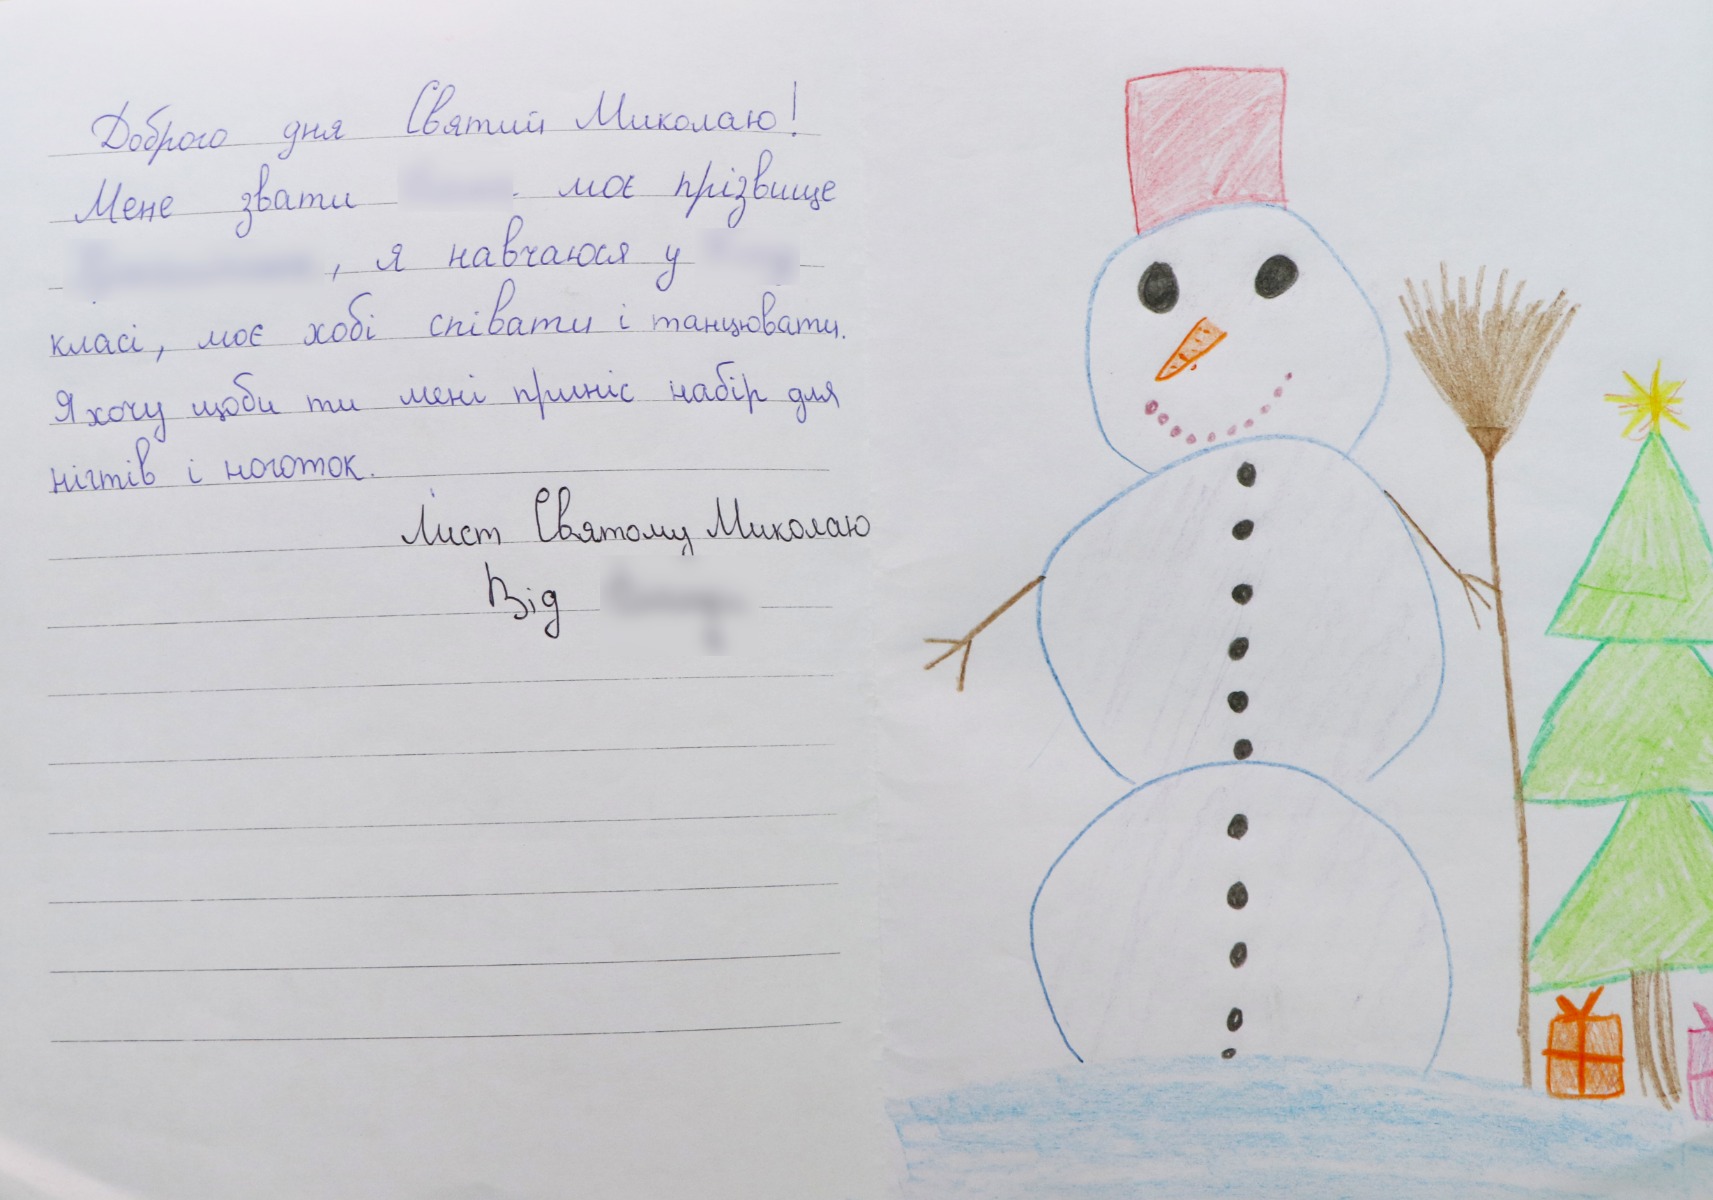 Доброго дня Святий Миколаю!
Мене звати моє прізвище
, я навчаюся у
класі, моє хобі співати і танцювати.
Я хочу щоби ти мені приніс набір для
нігтів і ноготок.
Лист Святому Миколаю
Від